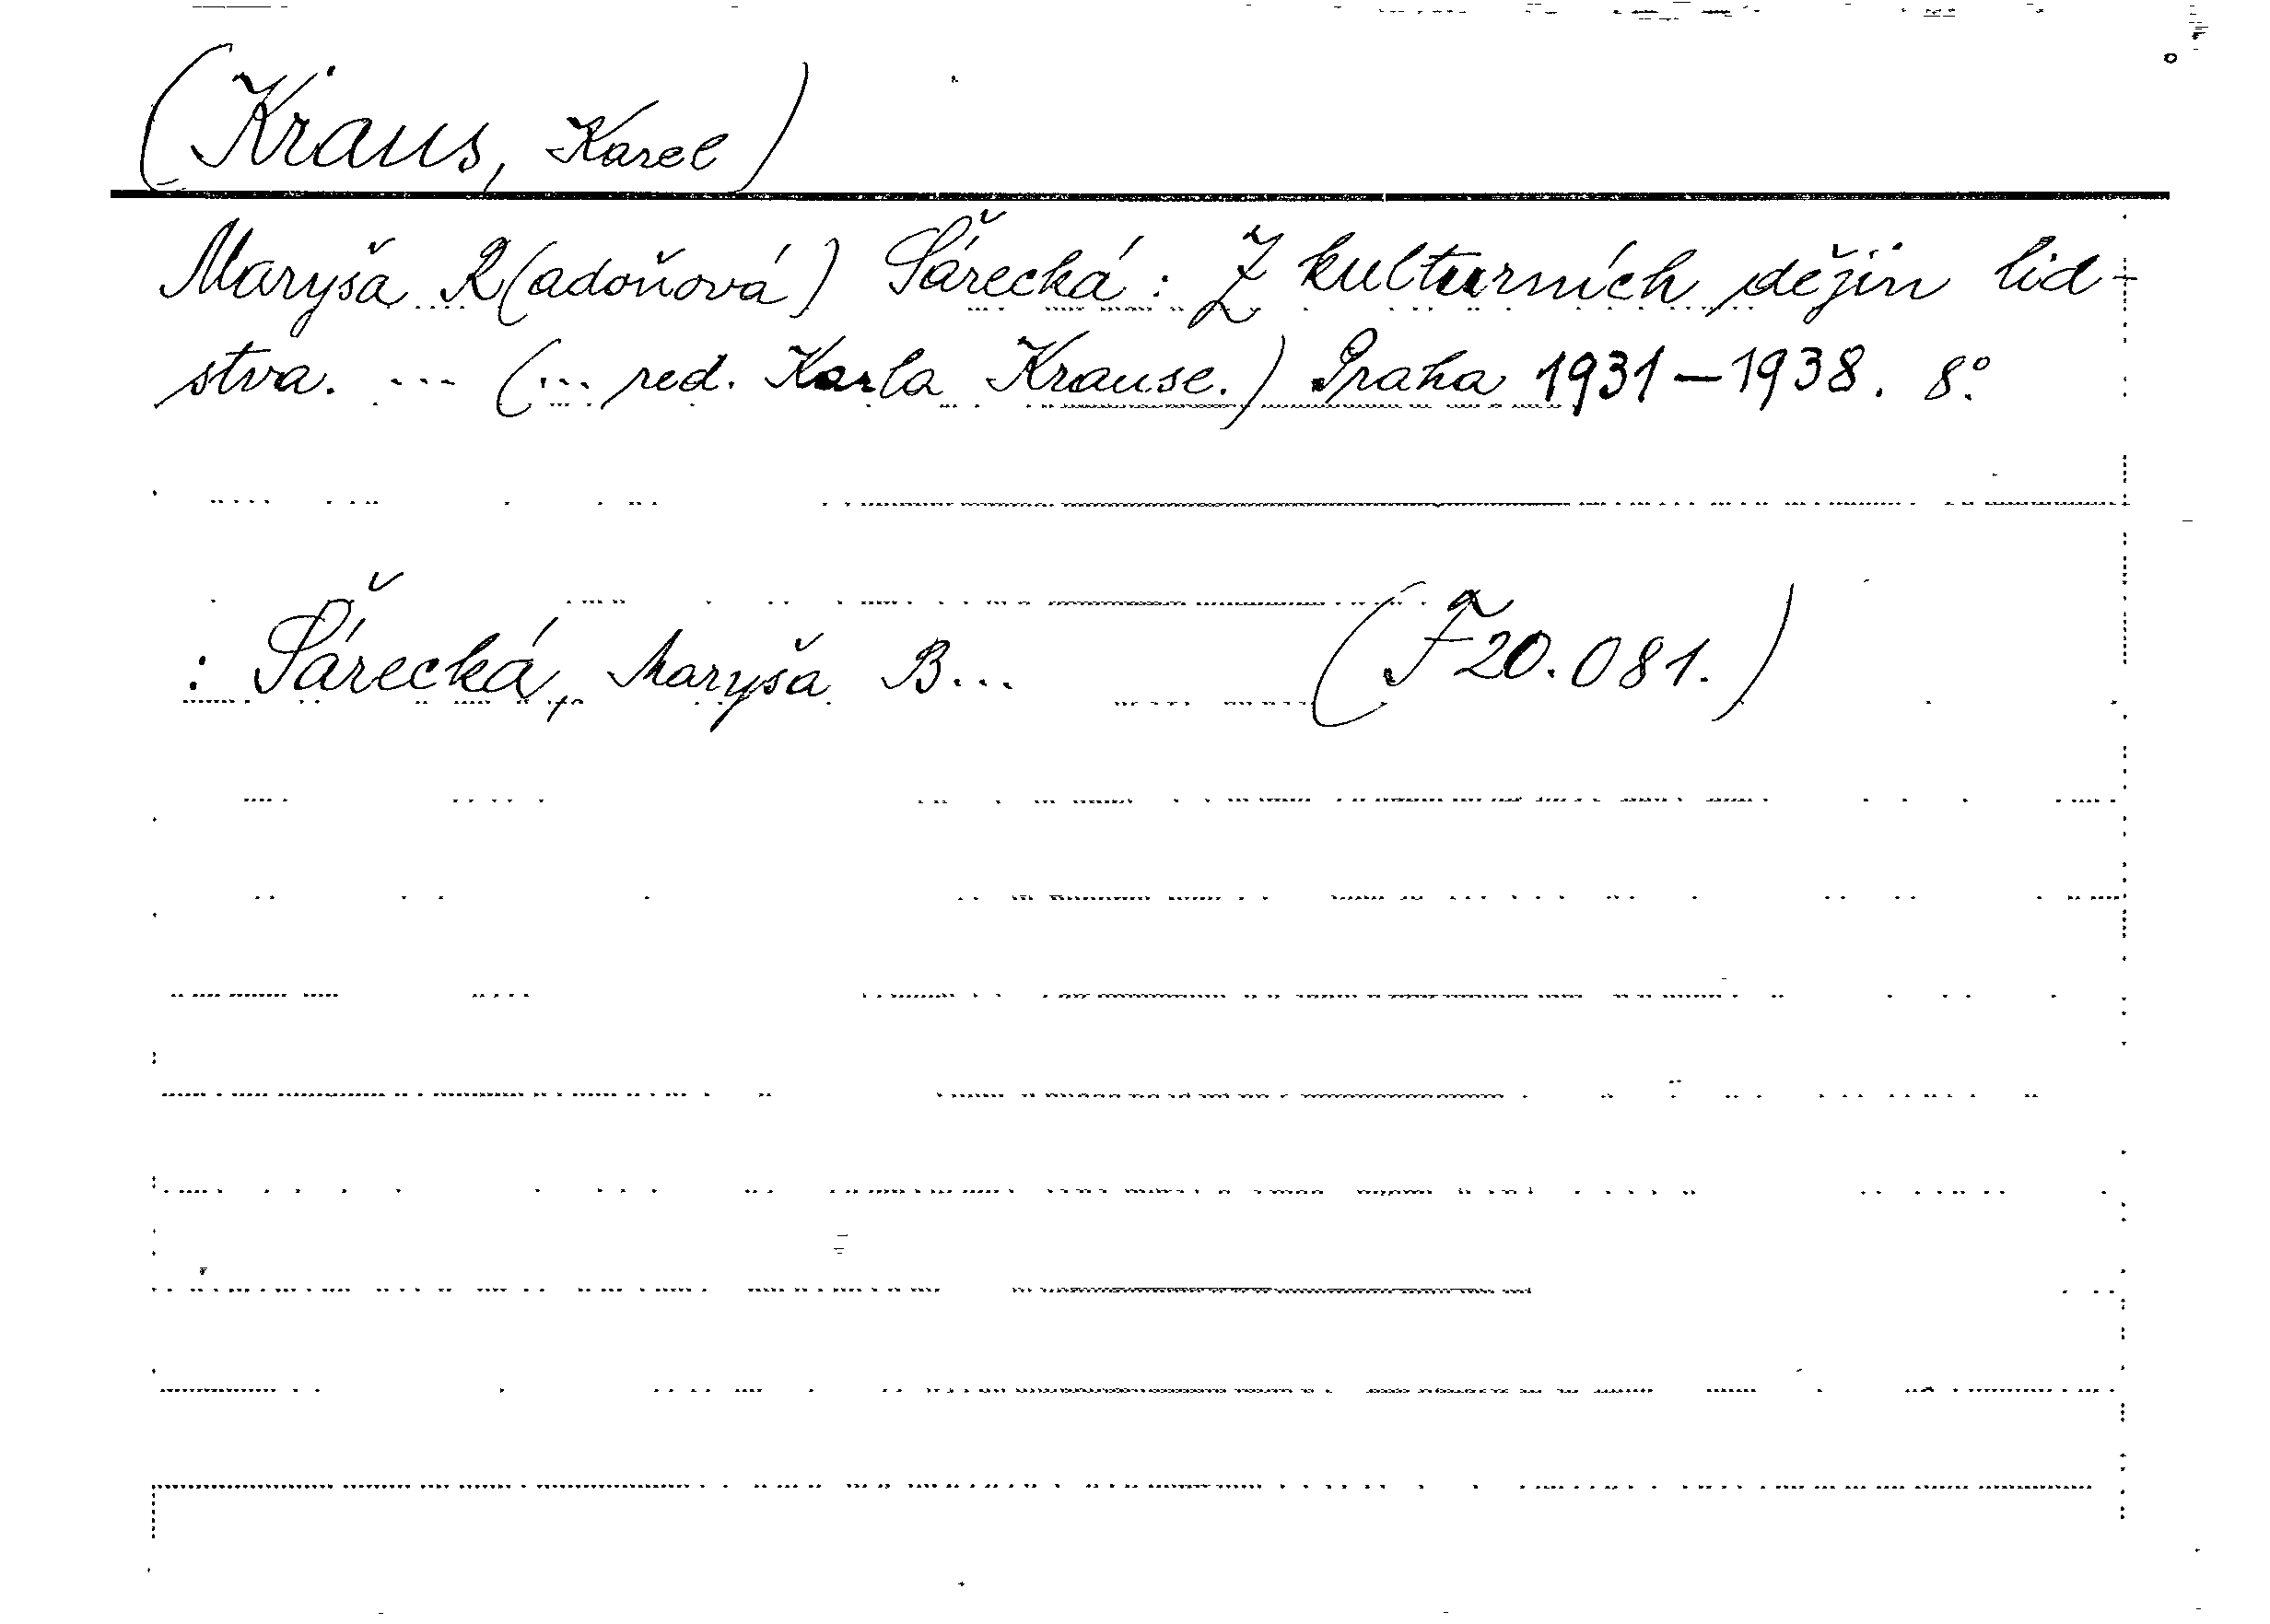 (Kraus, Karel)
Maryša R(adoňová) Šárecká: Z kulturních dějin lid-
stva. ... (... red. Karla Krause.) Praha 1931–1938. 8°.
: Šárecká, Maryša B... (F20.081.)